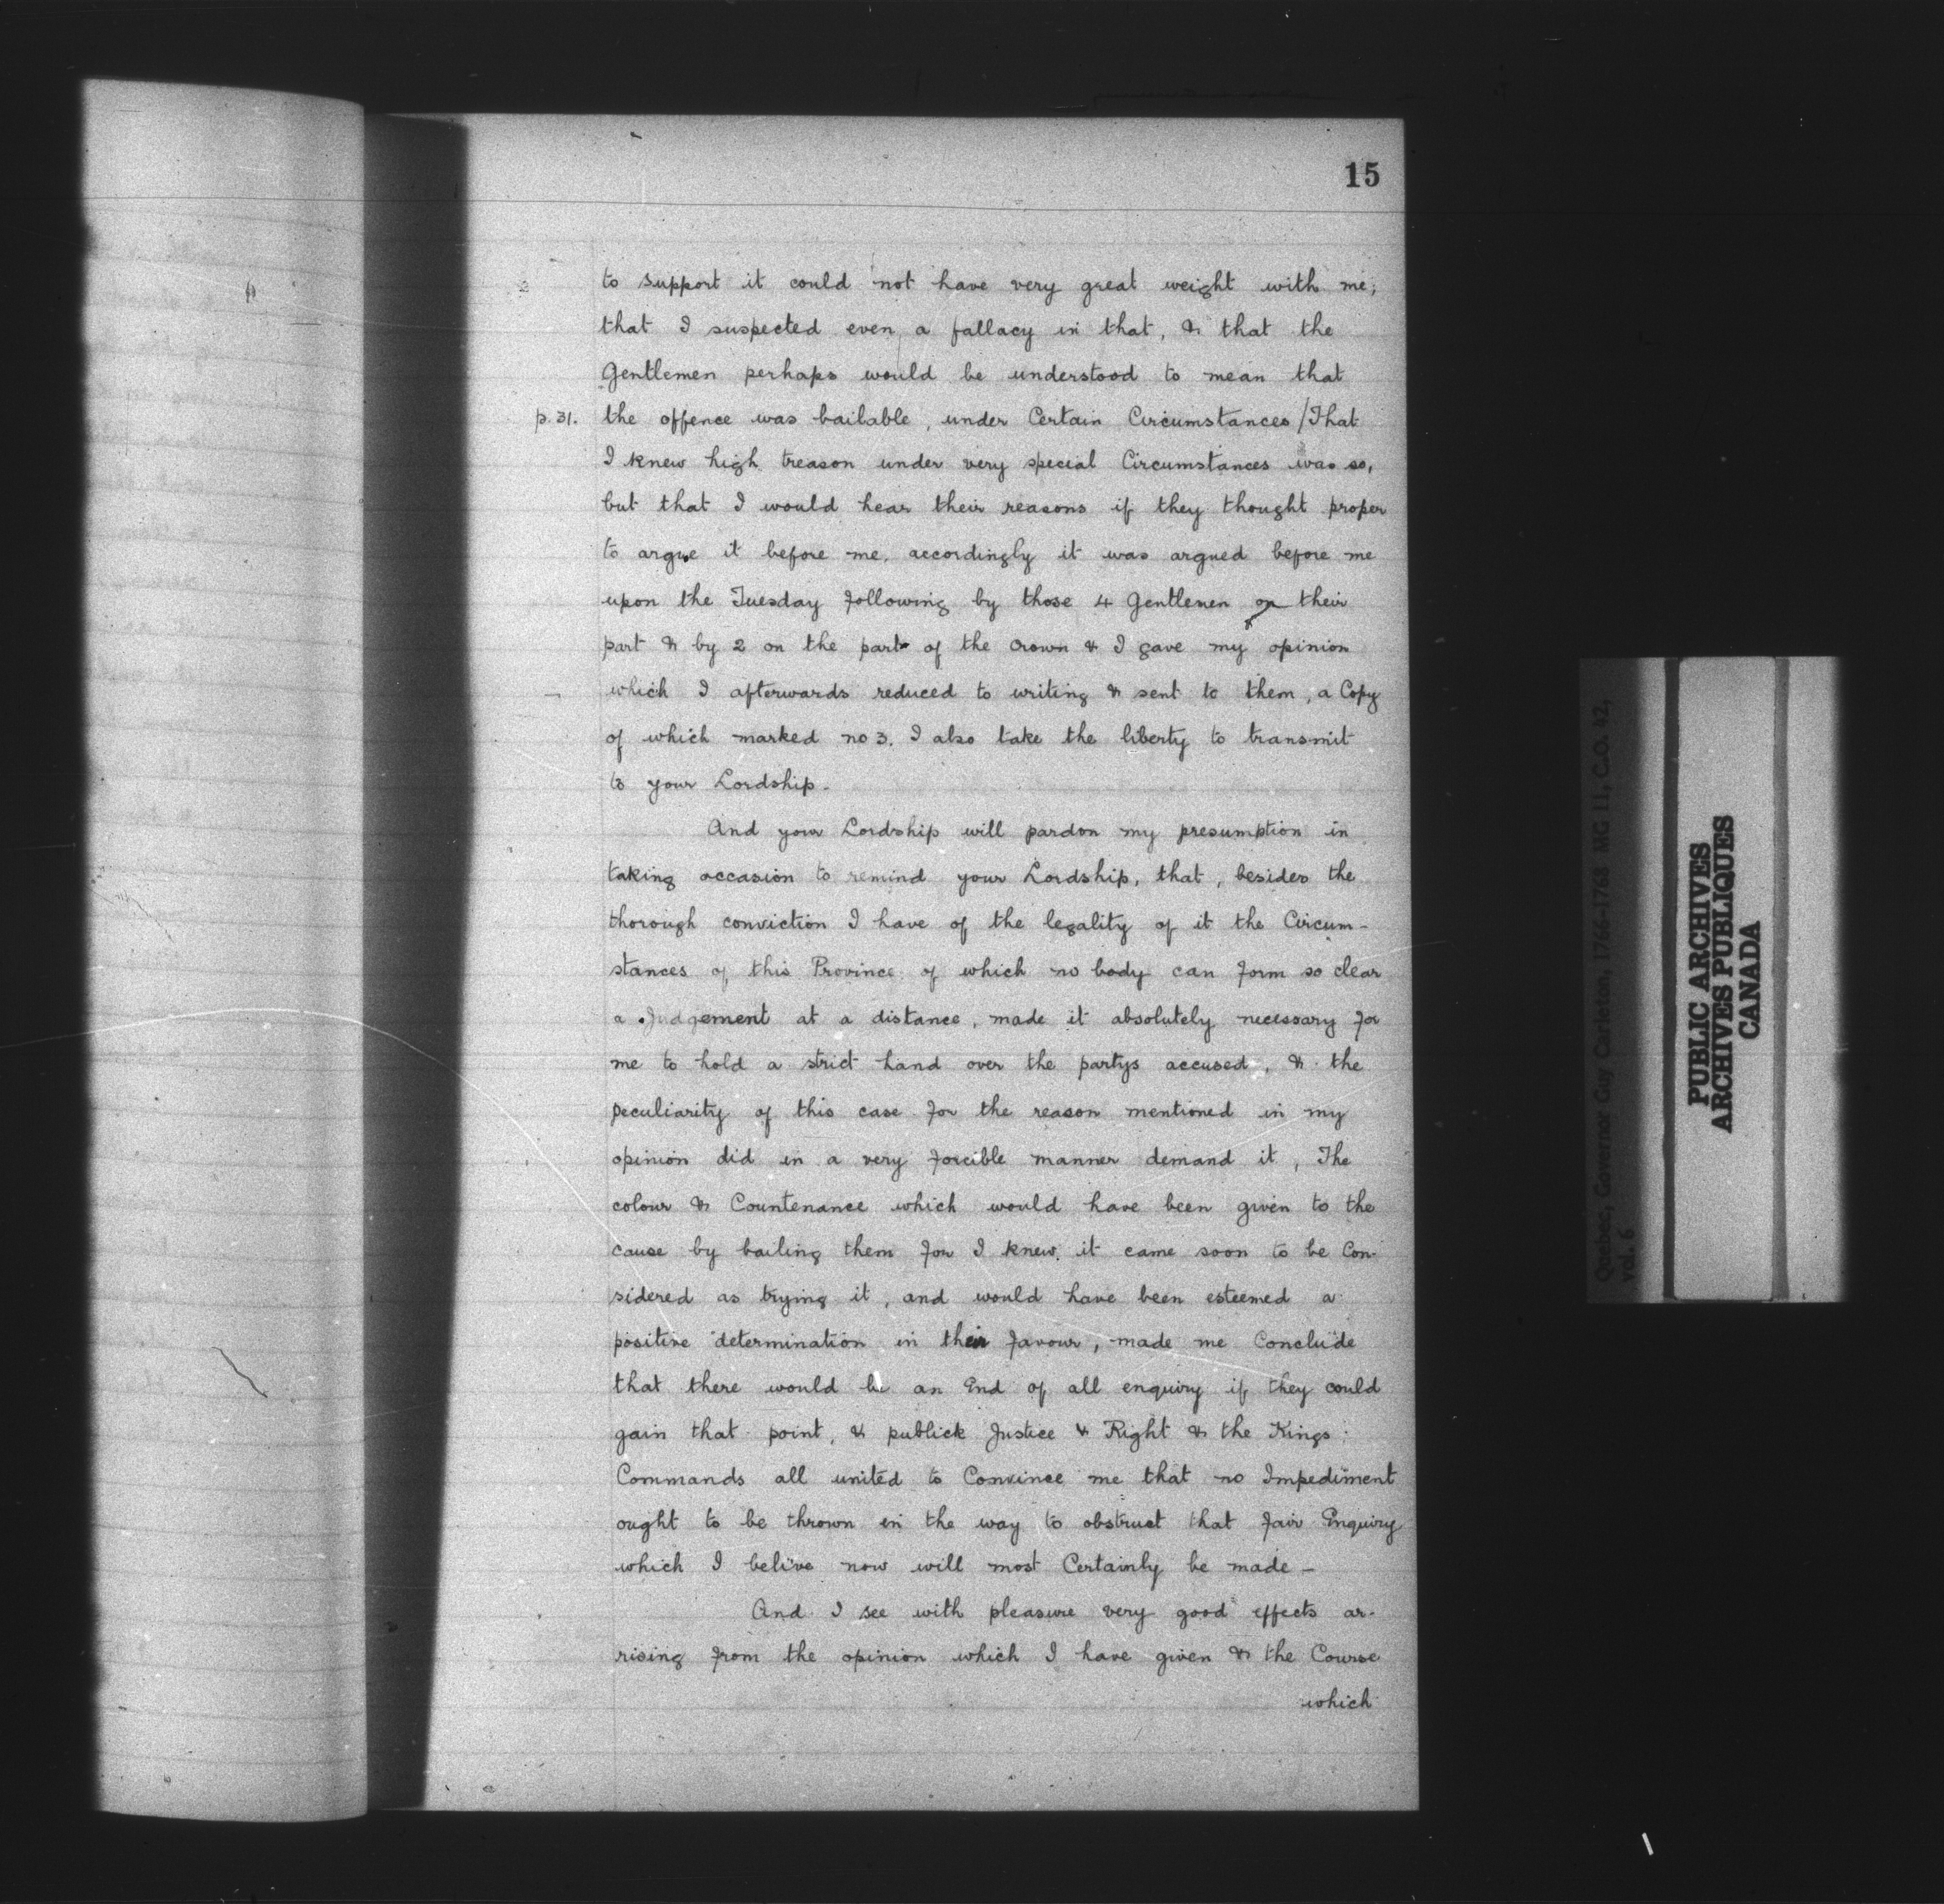 15
to support it could not have very great weight with me;
that I suspected even a fallacy in that, & that the
Gentlemen perhaps would be understood to mean that
p. 31. the offence was bailable, under Certain Circumstances / That
I knew high treason under very special Circumstances was so,
but that I would hear their reasons if they thought proper
to argue it before me. accordingly it was argued before me
upon the Tuesday following by those 4 Gentlemen on their
part & by 2 on the part of the Crown & I gave my opinion
which I afterwards reduced to writing & sent to them, a Copy
of which marked no 3. I also take the liberty to transmit
to your Lordship.
And your Lordship will pardon my presumption in
taking occasion to remind your Lordship, that, besides the
thorough conviction I have of the legality of it the Circum-
stances of this Province of which no body can form so clear
a Judgement at a distance, made it absolutely necessary for
me to hold a strict hand over the partys accused, & the
peculiarity of this case for the reason mentioned in my
opinion did in a very forcible manner demand it, The
colour & Countenance which would have been given to the
cause by bailing them for I knew it came soon to be Con-
sidered as trying it, and would have been esteemed a
positive determination in their favour, made me Conclude
that there would be an End of all enquiry if they could
gain that point, & publick Justice & Right & the Kings
Commands all united to Convince me that no Impediment
ought to be thrown in the way to obstruct that fair Enquiry
which I belive now will most Certainly be made -
And I see with pleasure very good effects ar-
rising from the opinion which I have given & the Course
which
Quebec, Governor Guy Carleton, 1766-1768 MG 11, C.O. 42,
vol. 6
PUBLIC ARCHIVES
ARCHIVES PUBLIQUES
CANADA